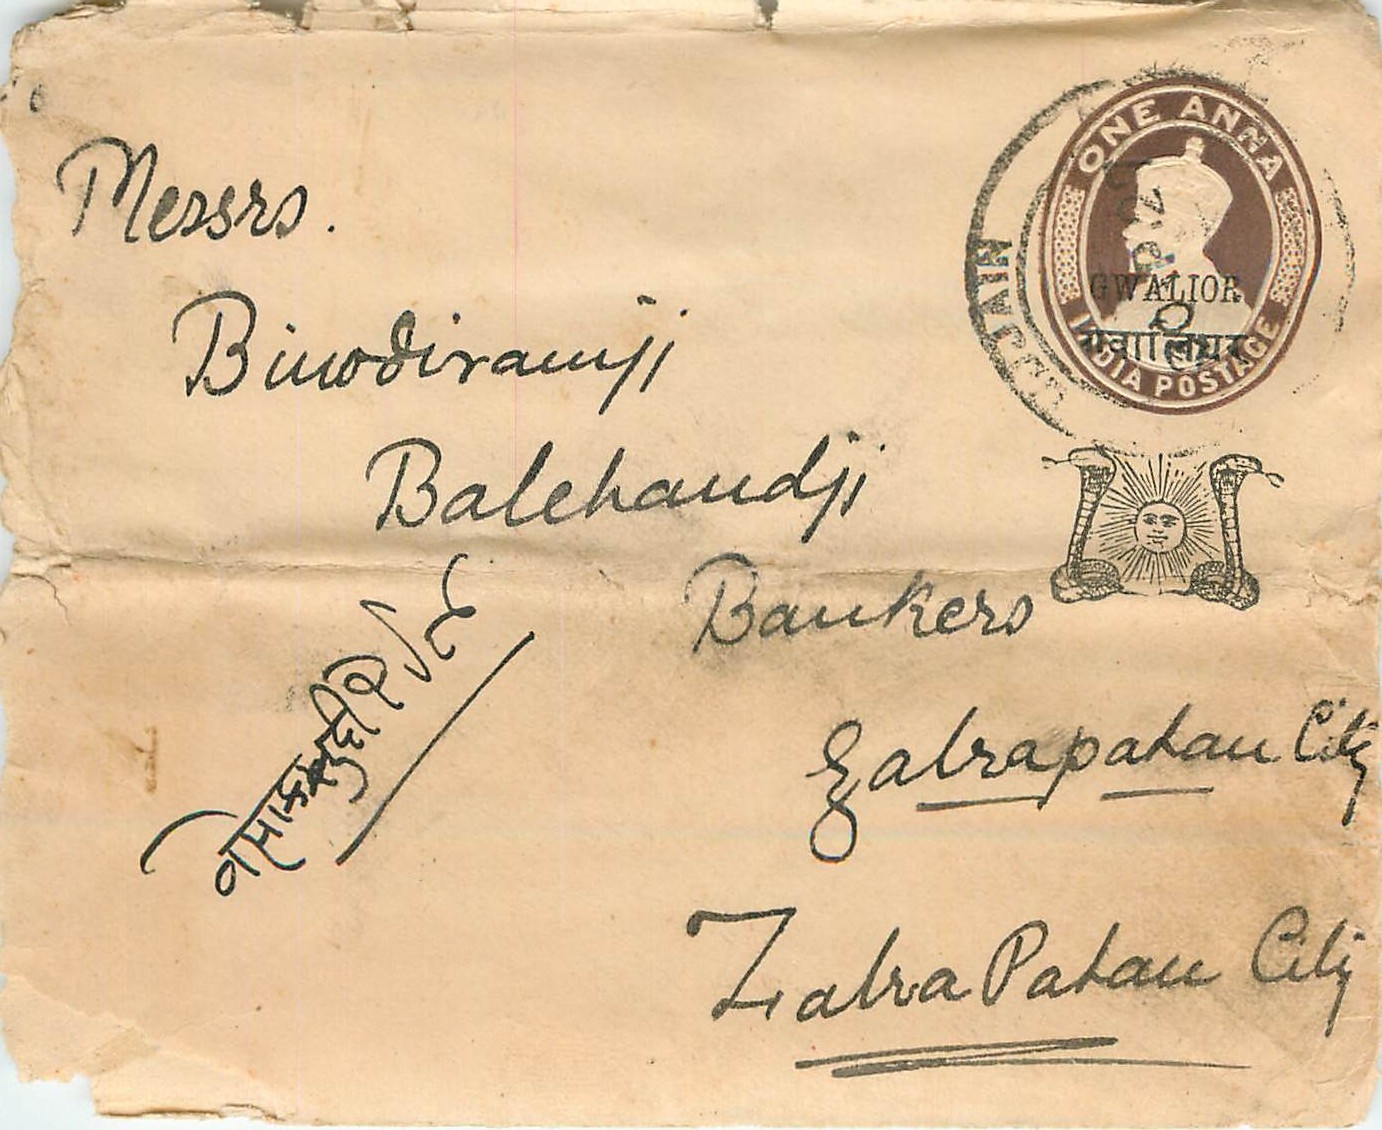 ONE ANNA
GWALIOR
ग्वालियर
INDIA POSTAGE
UJJAIN
Messrs.
Binodiramji
Balchandji
Bankers
Zalrapatan City
Zalra Patan City